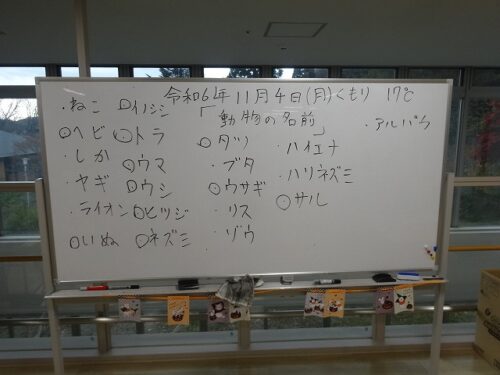 令和6年11月4日(月)くもり 17℃
「動物の名前」
・ねこ
○ヘビ
・しか
・ヤギ
・ライオン
○いぬ
○イノシシ
○トラ
○ウマ
○ウシ
○ヒツジ
○ネズミ
○タツ
・ブタ
○ウサギ
・リス
・ゾウ
・ハイエナ
・ハリネズミ
○サル
・アルパカ